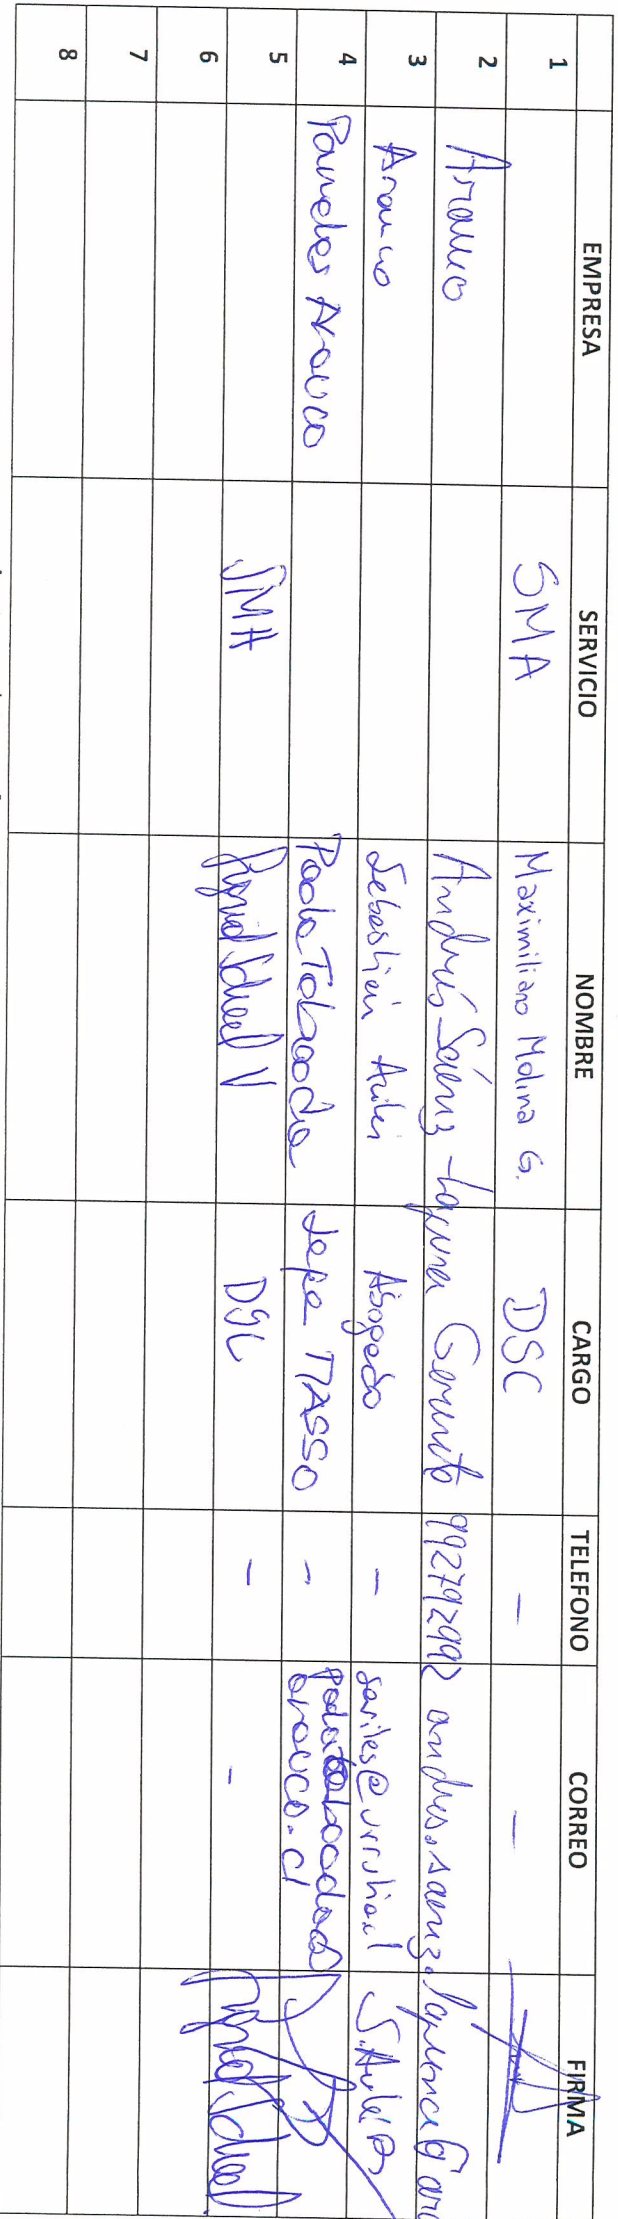 EMPRESA SERVICIO NOMBRE CARGO TELEFONO CORREO FIRMA
1 SMA Maximiliano Molina G. DSC - -
2 Arauco Andrés Sáenz-Laguna Gerente 992792992
3 Arauco Sebastián Avilés Abogado - saviles@urrutia.cl S. Avilés
4 Paneles Arauco Paola Taboada Jefe MASSO -
arauco.cl
5 SMA DSC - -
6
7
8